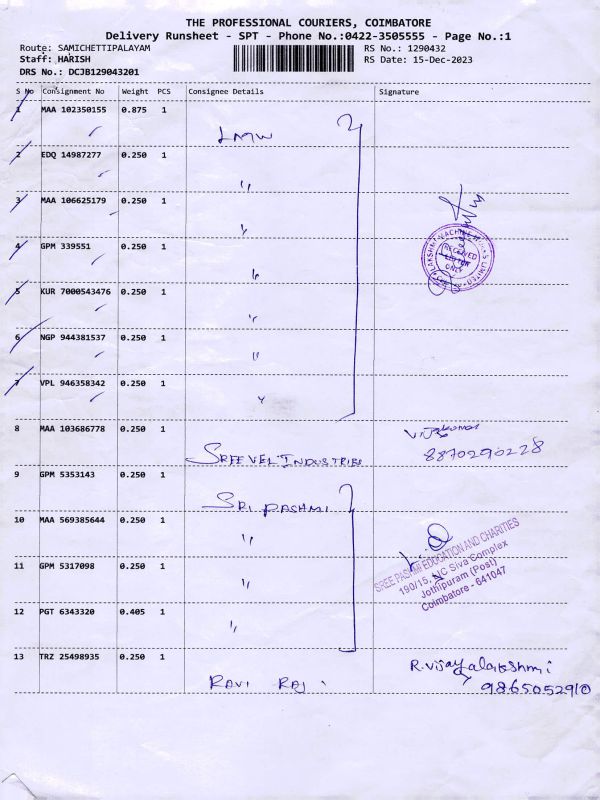 THE PROFESSIONAL COURIERS, COIMBATORE
Delivery Runsheet - SPT - Phone No.:0422-3505555 - Page No.:1
Route: SAMICHETTIPALAYAM RS No.: 1290432
Staff: HARISH RS Date: 15-Dec-2023
DRS No.: DCJB129043201
S No Consignment No Weight PCS Consignee Details Signature
1 MAA 102350155 0.875 1
LMW
2 EDQ 14987277 0.250 1
"
3 MAA 106625179 0.250 1
"
4 GPM 339551 0.250 1
"
5 KUR 7000543476 0.250 1
"
6 NGP 944381537 0.250 1
"
7 VPL 946358342 0.250 1
"
LAKSHMI MACHINE WORKS LIMITED
RECEIVED
ONLY
8 MAA 103686778 0.250 1
SREE VEL INDUSTRIES 8870290228
9 GPM 5353143 0.250 1
SRI PASHMI
10 MAA 569385644 0.250 1
"
11 GPM 5317098 0.250 1
"
12 PGT 6343320 0.405 1
"
SREE PASHMI EDUCATION AND CHARITIES
190/15, NC Siva Complex
Jothipuram (Post)
Coimbatore - 641047
13 TRZ 25498935 0.250 1
RAVI RAJ R. Vijayalakshmi
9865052910